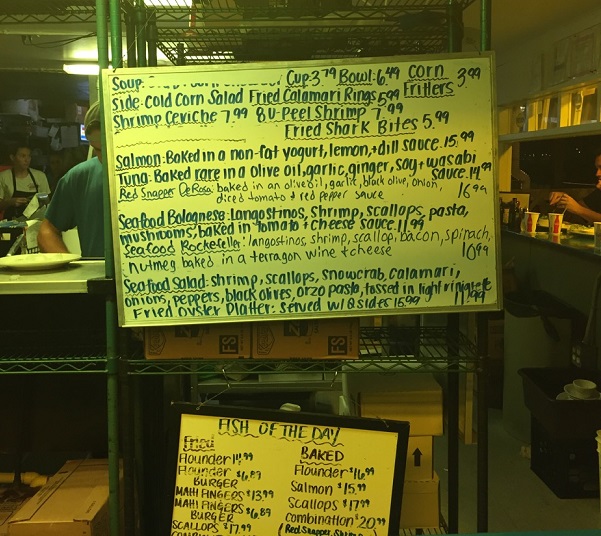 Soup: Cup: 3.79 Bowl: 6.49 Corn
Side: Cold Corn Salad Fried Calamari Rings 5.99 Fritters 3.99
Shrimp Ceviche 7.99 8 U-Peel Shrimp 7.99
Fried Shark Bites 5.99
Salmon: Baked in a non-fat yogurt, lemon, + dill sauce. 15.99
Tuna: Baked rare in a olive oil, garlic, ginger, soy + wasabi
sauce. 14.99
Red Snapper DeRosa: baked in an olive oil, garlic, black olive, onion,
diced tomato + red pepper sauce 16.99
Seafood Bolognese: Langostinos, shrimp, scallops, pasta,
mushrooms, baked in tomato + cheese sauce. 11.99
Seafood Rockefeller: langostinos, shrimp, scallop, bacon, spinach,
nutmeg baked in a terragon wine + cheese 10.99
Seafood Salad: shrimp, scallops, snowcrab, calamari,
onions, peppers, black olives, orzo pasta, tossed in light
Fried Oyster Platter: served w/ 2 sides 15.99 11.99
FS
FS
FISH OF THE DAY
Fried
BAKED
Flounder
Flounder $16.99
Flounder $6.89
BURGER
Salmon $15.99
MAHI FINGERS $13.99
Scallops $17.99
MAHI FINGERS $6.89
BURGER
Combination $20.99
SCALLOPS $17.99
(Red Snapper, Shrimp